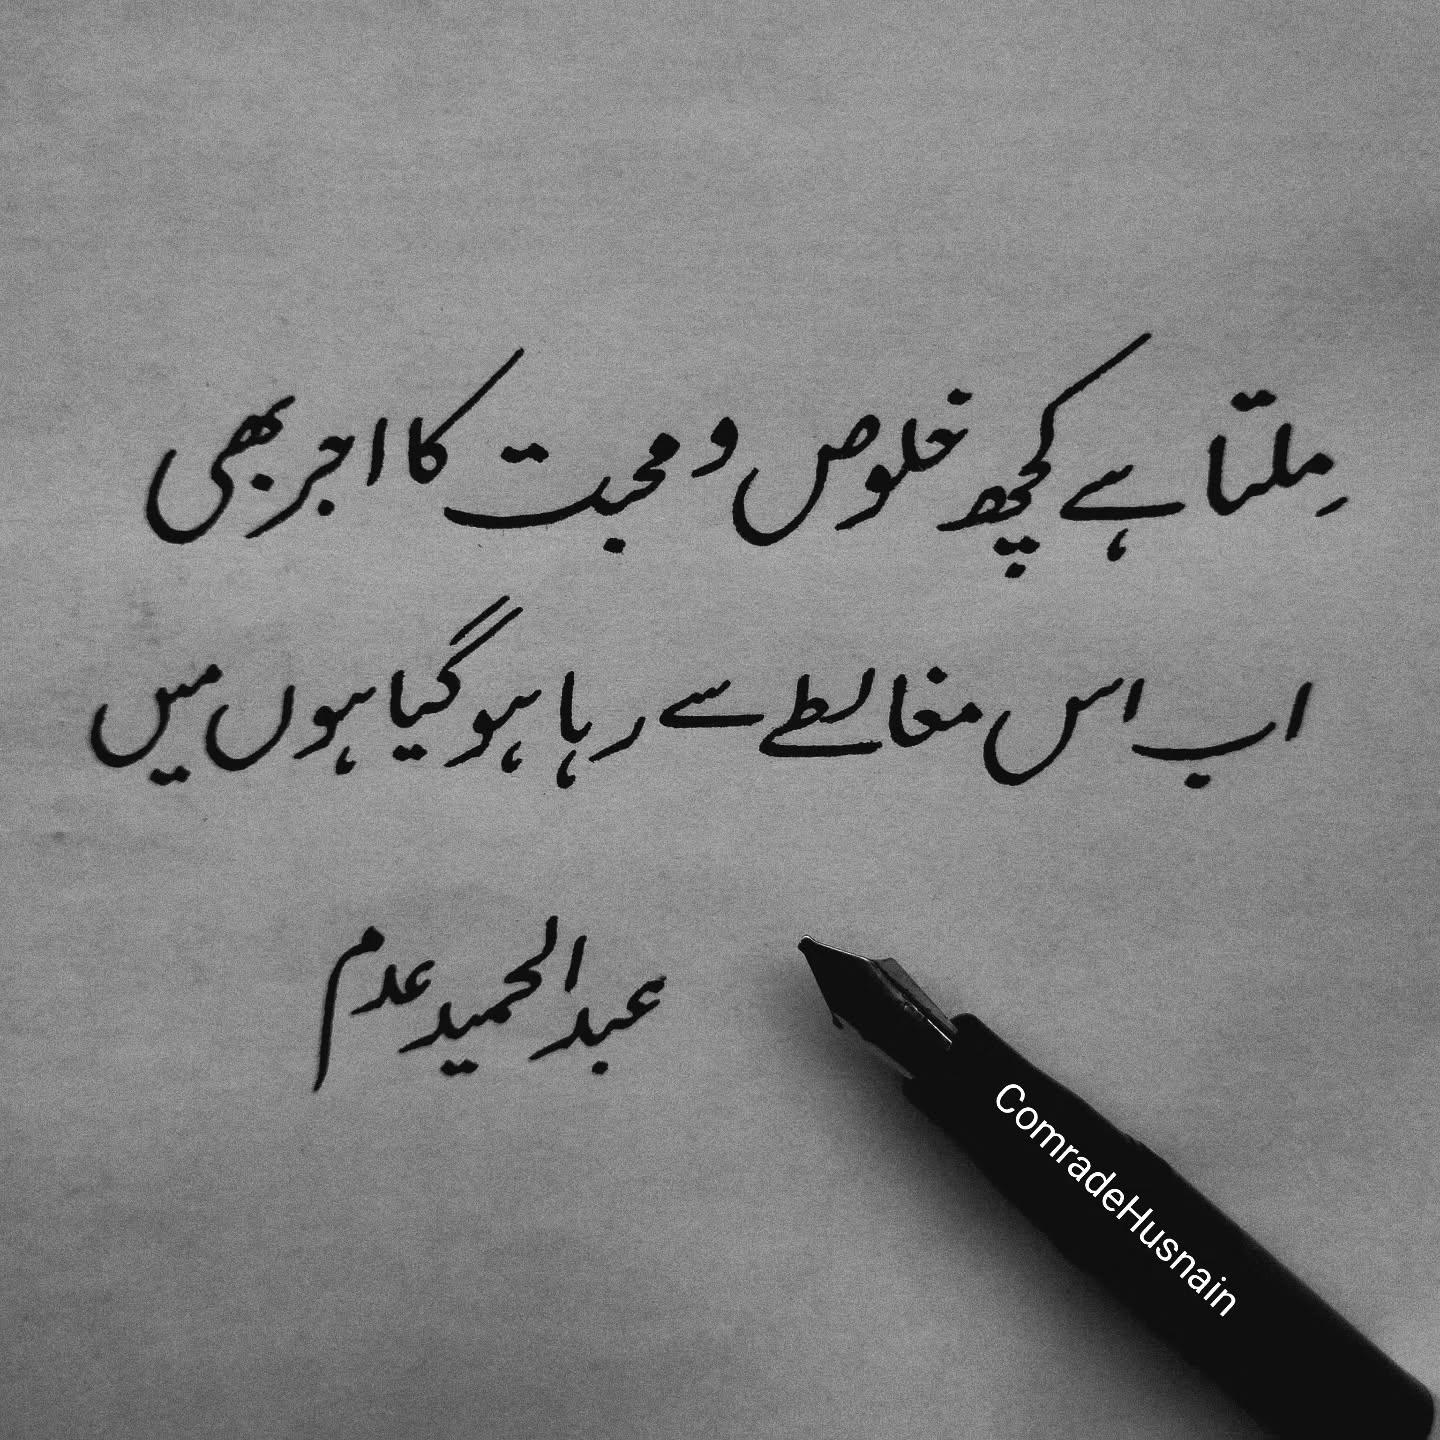 مِلتا ہے کچھ خلوص و محبت کا اجر بھی
اب اس مغالطے سے رہا ہو گیا ہوں میں
عبدالحمید عدم
ComradeHusnain